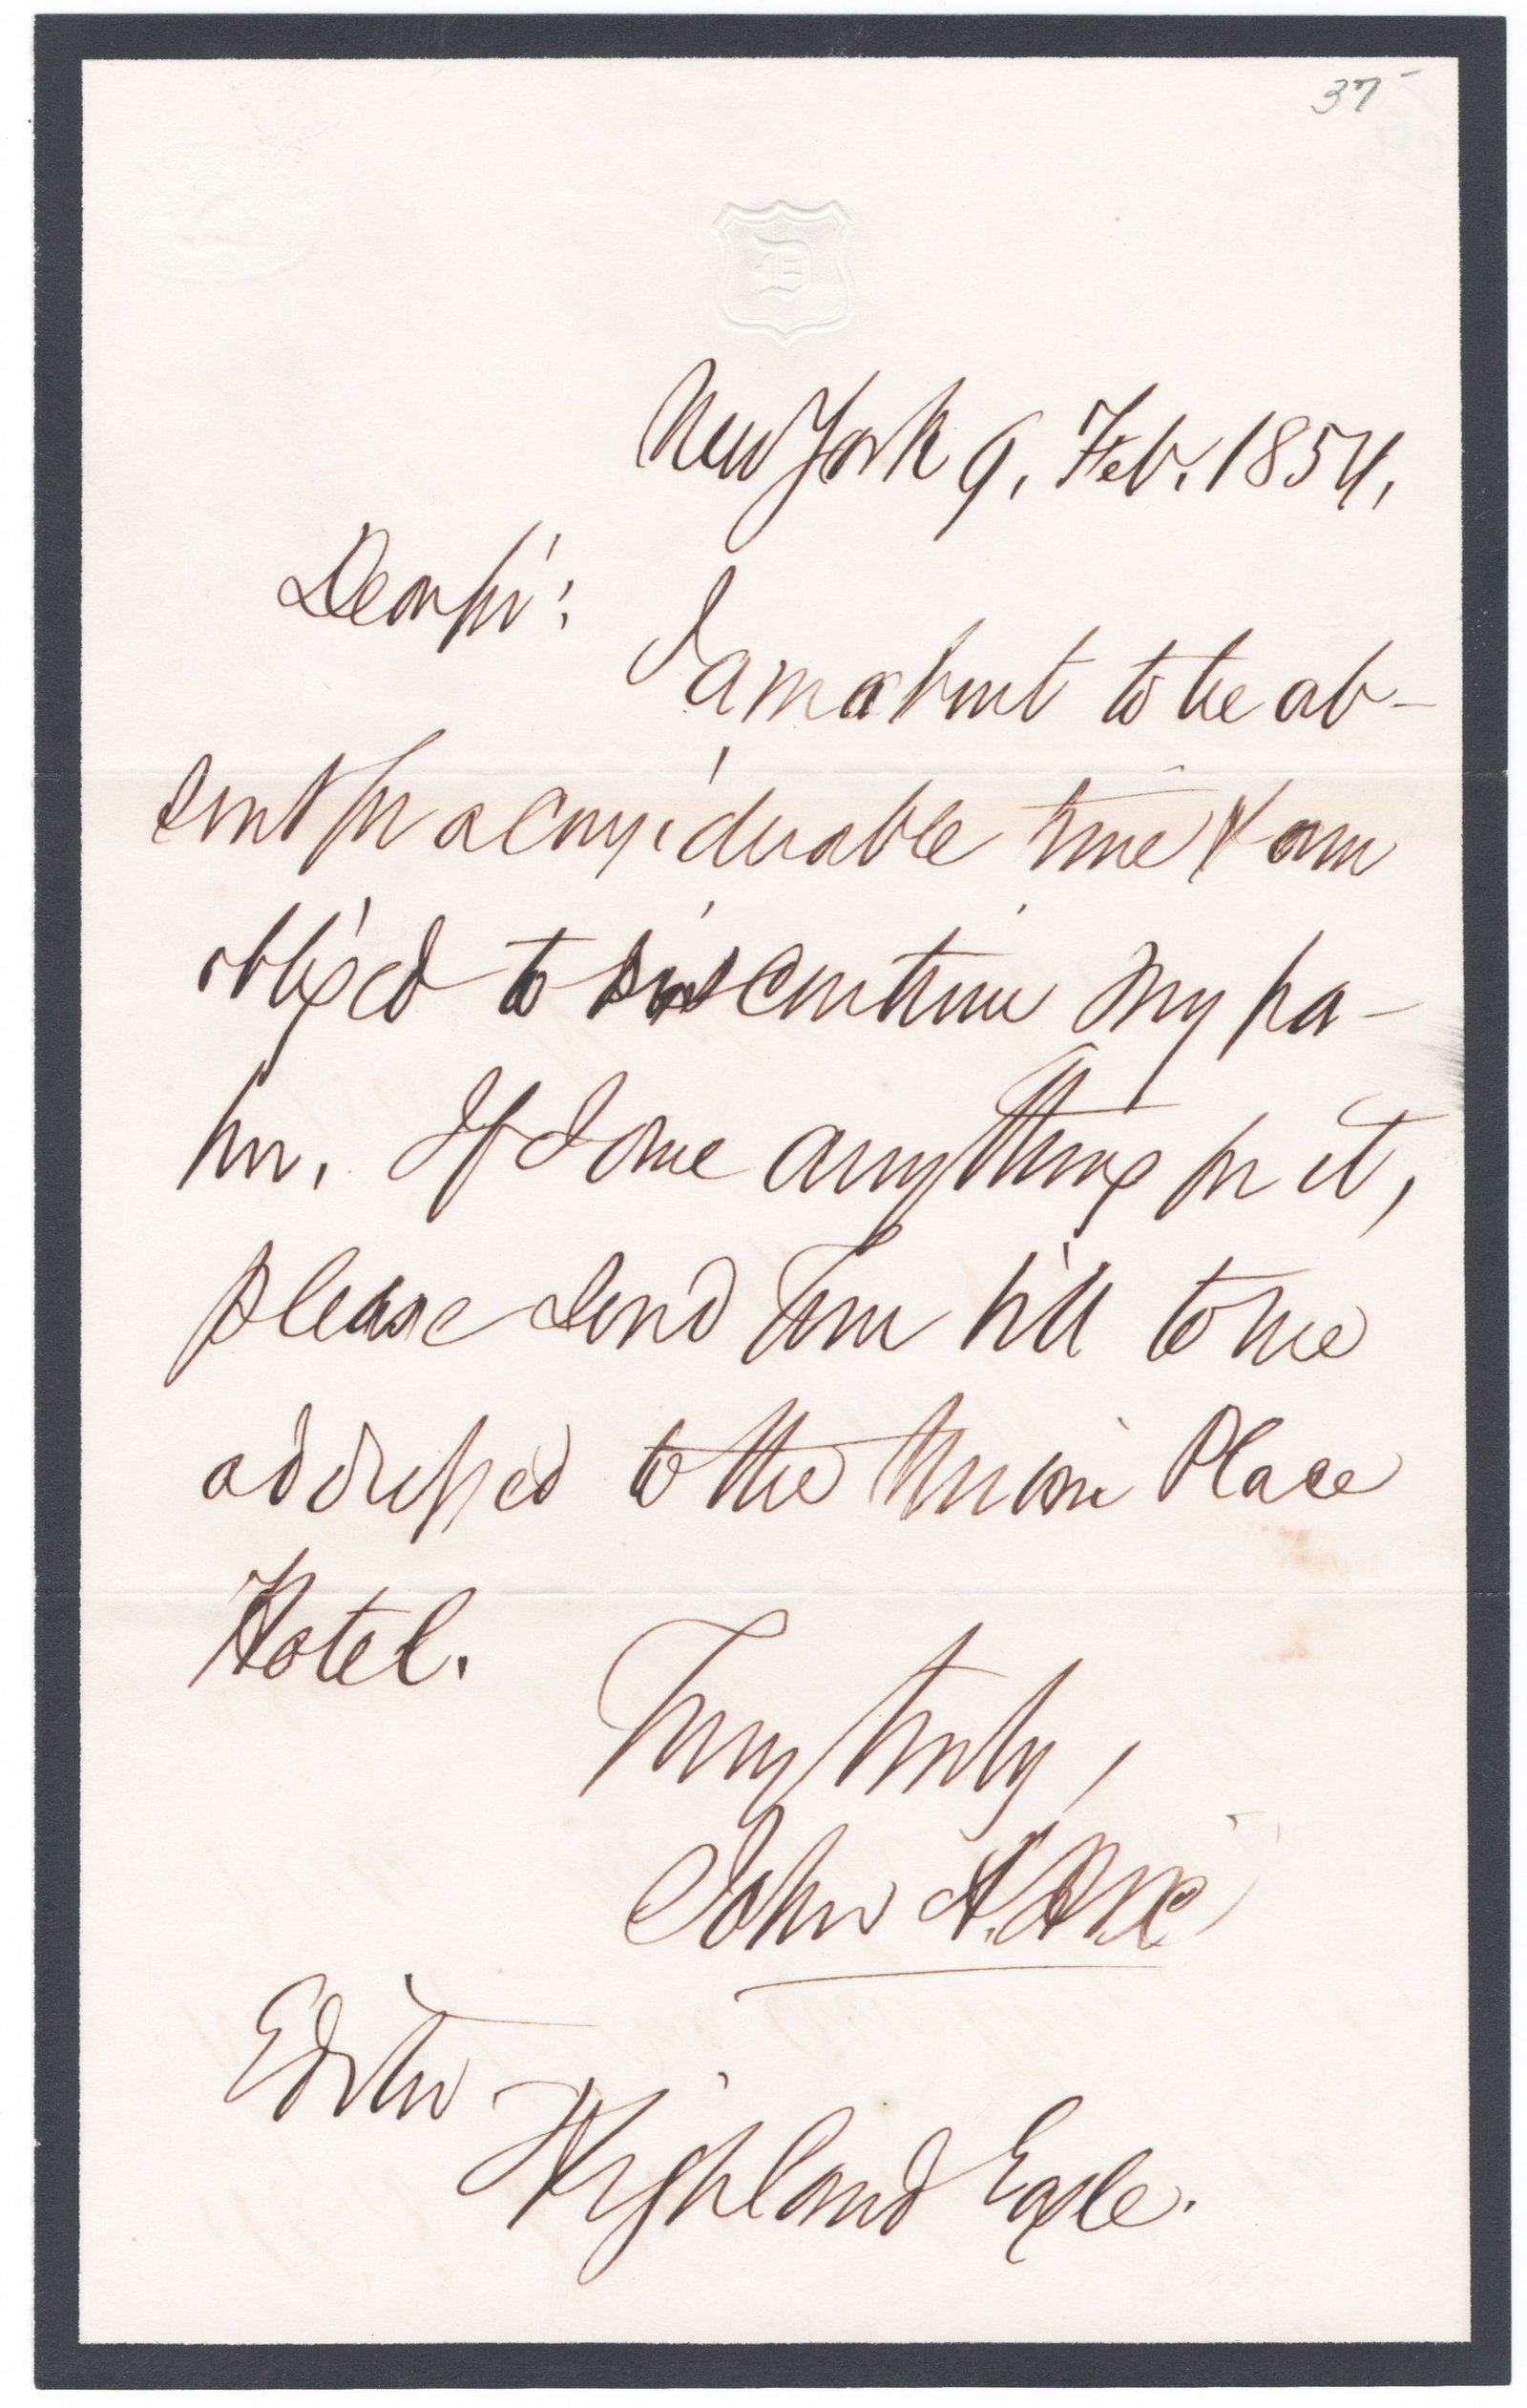 37-
D
New York 9, Feb. 1854,
Dear Sir:
I am about to be ab-
sent for a considerable time & am
obliged to discontinue my pa-
per. If I owe anything for it,
please send your bill to me
addressed to the Union Place
Hotel.
Very truly,
John A. Dix
Editor
Highland Eagle.